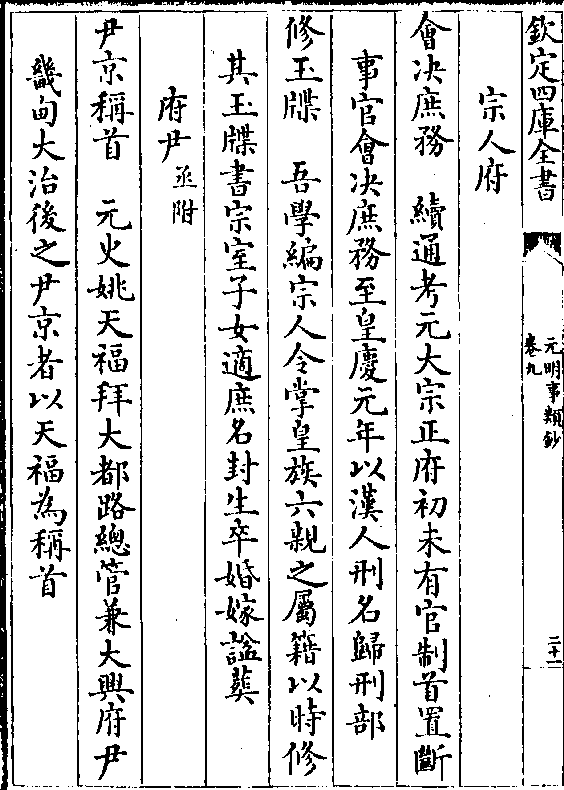 欽定四庫全書
元明事類鈔
卷九
二十一
宗人府
會決庶務　續通考元大宗正府初未有官制首置斷
事官會決庶務至皇慶元年以漢人刑名歸刑部
修玉牒　吾學編宗人令掌皇族六親之屬籍以時修
其玉牒書宗室子女適庶名封生卒婚嫁諡葬
府尹丞附
尹京稱首　元史姚天福拜大都路總管兼大興府尹
畿甸大治後之尹京者以天福為稱首